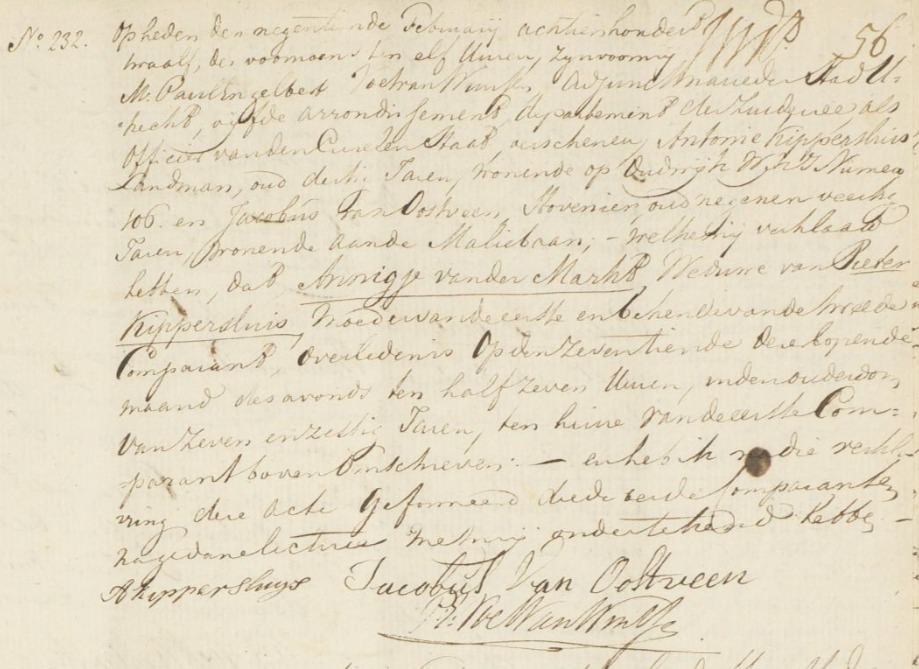 N.o 232. Op heden den negentiende Februarij achttienhonderd 56
twaalf, des voormiddags ten elf Uuren, zyn voor mij
M.r Paul Engelbert Voet van Winssen, Adjunct maire der Stad U=
trecht, vijfde arrondissement, departement der Zuiderzee als
Officier van den Civielen Staat, verschenen, Antonie Kippersluis,
Landman, oud dertig Jaren, wonende op Oudwijk W: Numero
106. en Jacobus van Oostveen Hovenier, oud negen en veertig
Jaren, wonende aan de Maliebaan; – welke mij verklaard
hebben, dat Annigje van der Markt, Weduwe van Pieter
Kippersluis, Moeder van de eerste en bekende van de tweede
Comparant, overleden is Op den Zeventiende dezer lopende
maand des avonds ten half zeven Uuren, in den ouderdom
van Zeven en zestig Jaren, ten huize van de eerste Com=
parant boven omschreven: – en heb ik na die verkla=
ring deze acte geformeerd die de beide Comparanten
na gedane lecture met mij ondertekend hebben –
A Kippersluys Jacobus Van Oostveen
P: Voet van Winssen